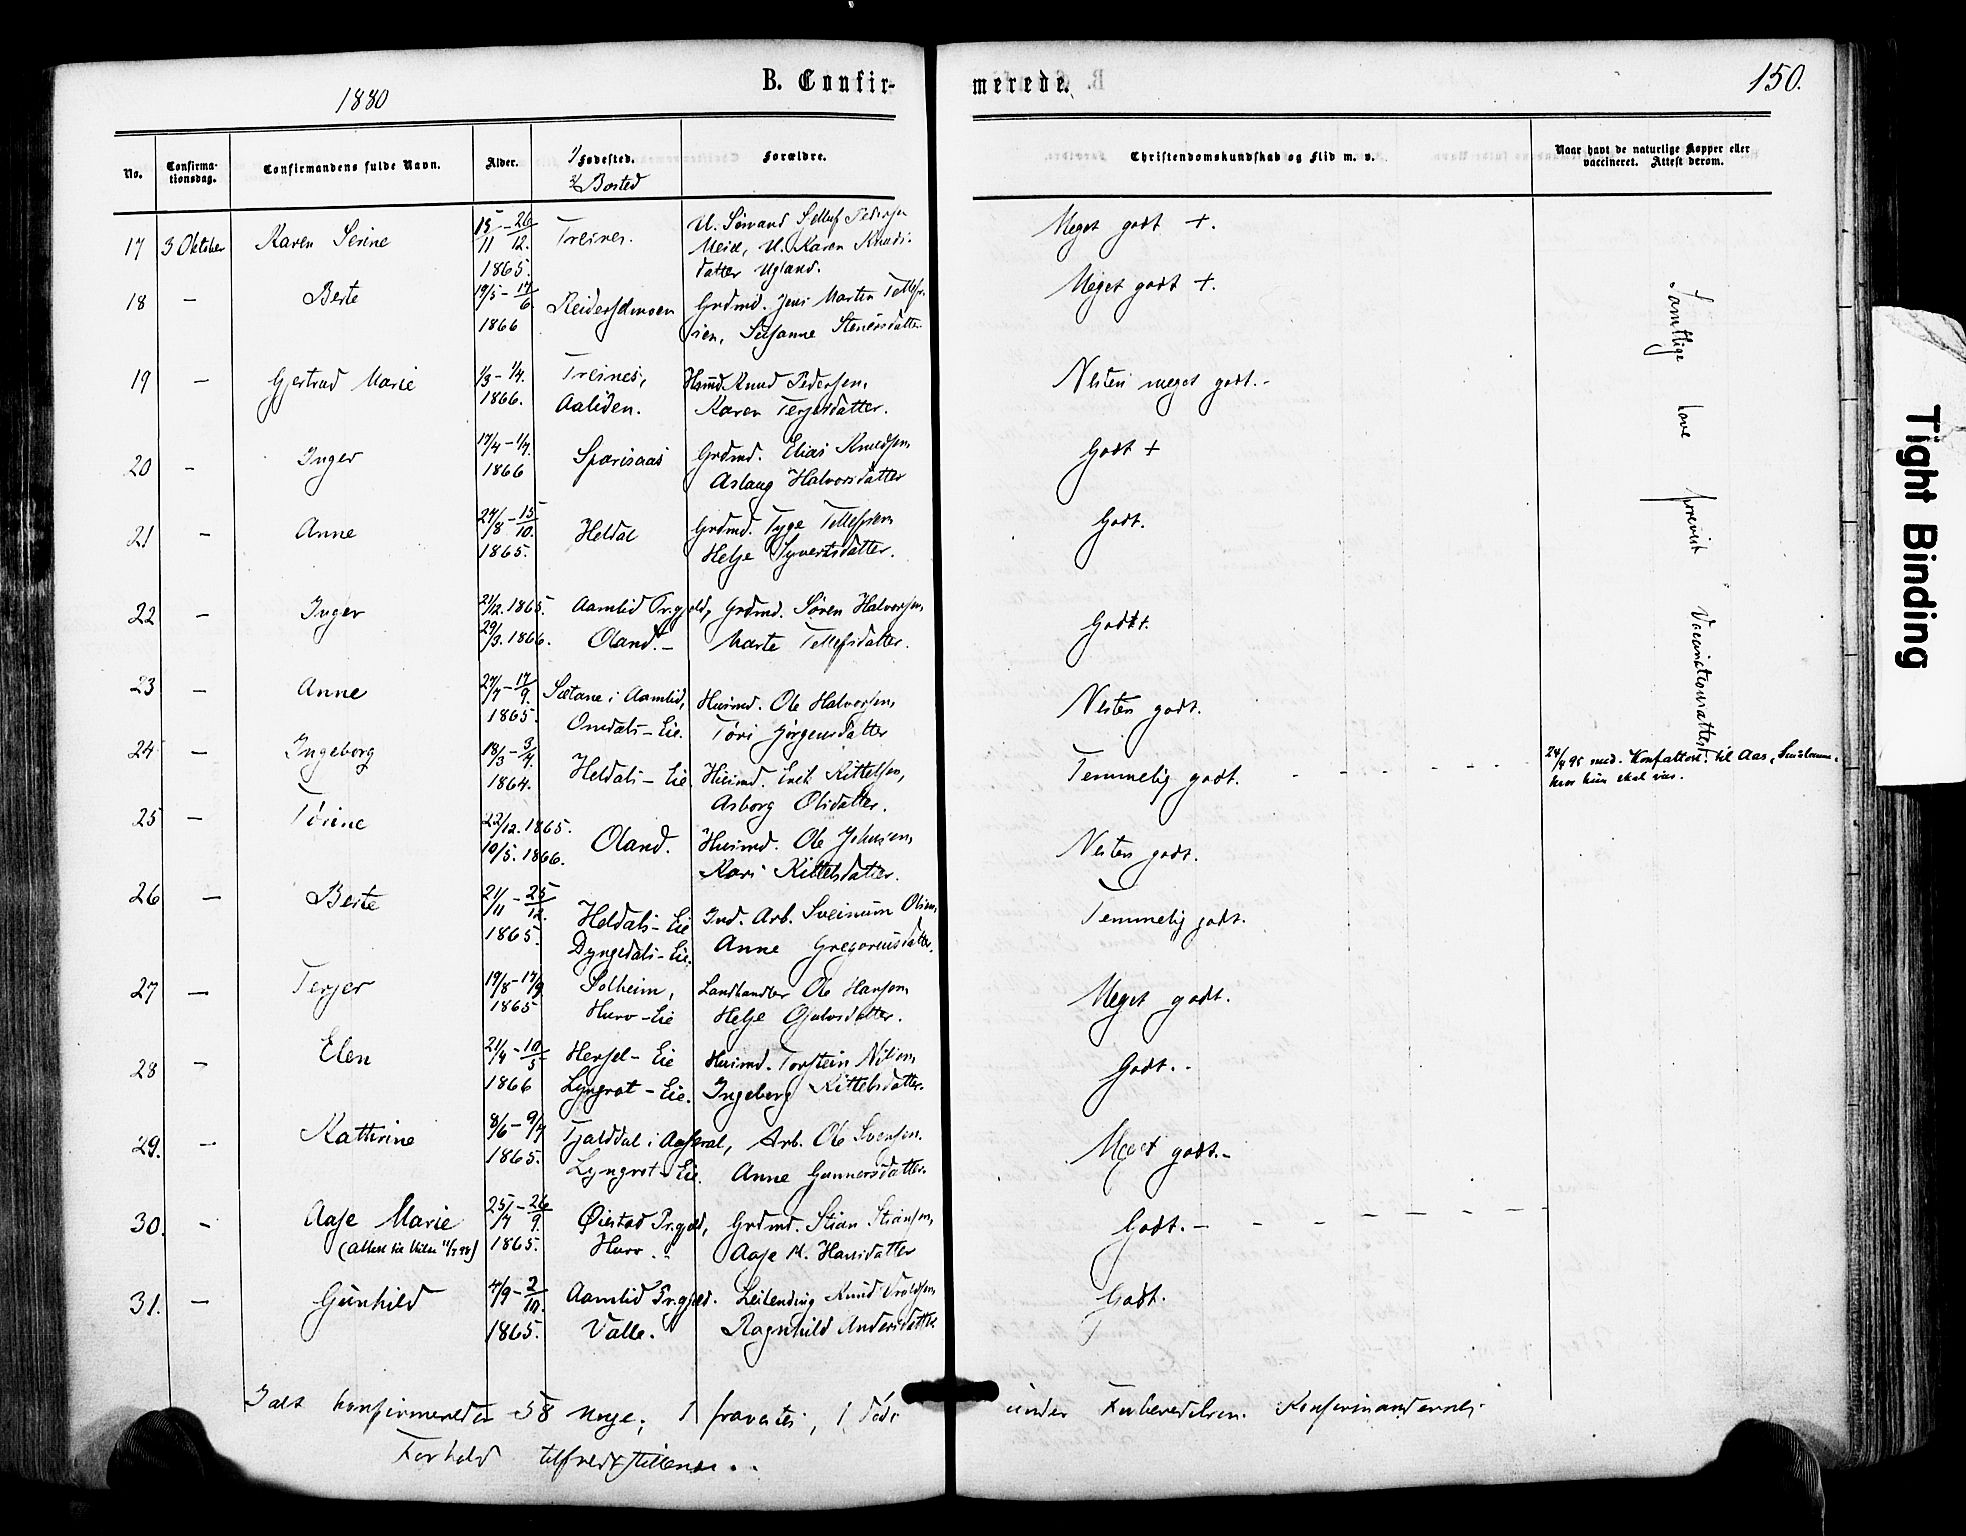 1880
B. Confir-
merede.
150.
No.
Confirma-
tionsdag.
Confirmandens fulde Navn.
Alder.
1/ Fødested.
2/ Bosted
Forældre.
Christendomskundskab og Flid m. v.
Naar havt de naturlige Kopper eller
vaccineret. Attest derom.
17 3 Oktober Karen Serine 15/11 - 26/12. 1865. Treines. U. Sørvand Pedersen
Meid, U. Karen Knuds-
datter Ugland. Meget godt +.
18 - Berte 19/5 - 17/6 1866 Grdmd. Jens Martin
sen, Susanne Stenersdatter. Meget godt +.
19 - Gjertrud Marie 1/3 - 1/4. 1866. Treines,
Aaliden. Husmd. Knud Pedersen,
Karen Terjesdatter. Nesten meget godt. -
20 - Inger 17/4 - 1/7. 1866 Sparsaas Grdmd. Elias Knudsen,
Aslaug Halvorsdatter Godt +
21 - Anne 24/8 - 15/10. 1865. Heldal Grdmd. Tyge Tellefsen,
Helje Syvertsdatter. Godt.
22 - Inger 21/12. 1865. 29/3. 1866. Aamlid Pr.gjeld,
Oland. - Grdmd. Søren Halvorsen,
Marte Tellefsdatter. Godt.
23 - Anne 27/7 - 17/9. 1865. Sætane i Aamlid,
Omdals-Eie. Husmd. Ole Halvorsen,
Tøri Jørgensdatter Nesten godt.
24 - Ingeborg 18/3 - 3/4. 1864. Heldals-Eie. Husmd. Erik Kittelsen,
Asborg Olsdatter. Temmelig godt. - - - - - -
25 - Tørine 22/12. 1865. 10/5. 1866. Oland. Husmd. Ole Johnsen,
Kari Kittelsdatter. Nesten godt.
26 - Berte 21/11 - 25/12. 1865. Heldals-Eie
Dyngedals-Eie. Ind. Arb. Sveinum Olsen,
Anne Gregoriusdatter. Temmelig godt.
27 - Terjer 19/8 - 17/9 1865 Solheim,
Hurv-Eie Landhandler Ole Hansen,
Helje Gjulvsdatter. Meget godt.
28 - Elen 21/4 - 10/5 1866 Hersel-Eie
Lyngrot-Eie. Husmd. Torstein Nilsen,
Ingeborg Kittelsdatter. Godt. -
29. - Kathrine 8/6 - 9/7 1865. Tjalddal i Aaseral,
Lyngrot-Eie. Arb. Ole Svensen.
Anne Gunnersdatter. Meget godt. -
30. - Aase Marie
(Attest 11/7 98) 25/7 - 26/9. 1865. Øiestad Pr.gjeld,
Hurv. Grdmd. Stian Stiansen,
Aase M. Hansdatter Godt. - - - - - -
31. - Gunhild 4/9 - 2/10. 1865. Aamlid Pr.gjeld.
Valle. Leilending Knud
Ragnhild Andersdatter Godt.
Samtlige have forevist Vaccinationsattest
24/4 95 med. Konf.attest. til Aas,
hvor hun skal vies.
Ialt konfirmeredes 58 Unge; 1 fraveiste, 1 døde under Forberedelsen. Konfirmandernes
Forhold tilfredsstillende.
Tight Binding